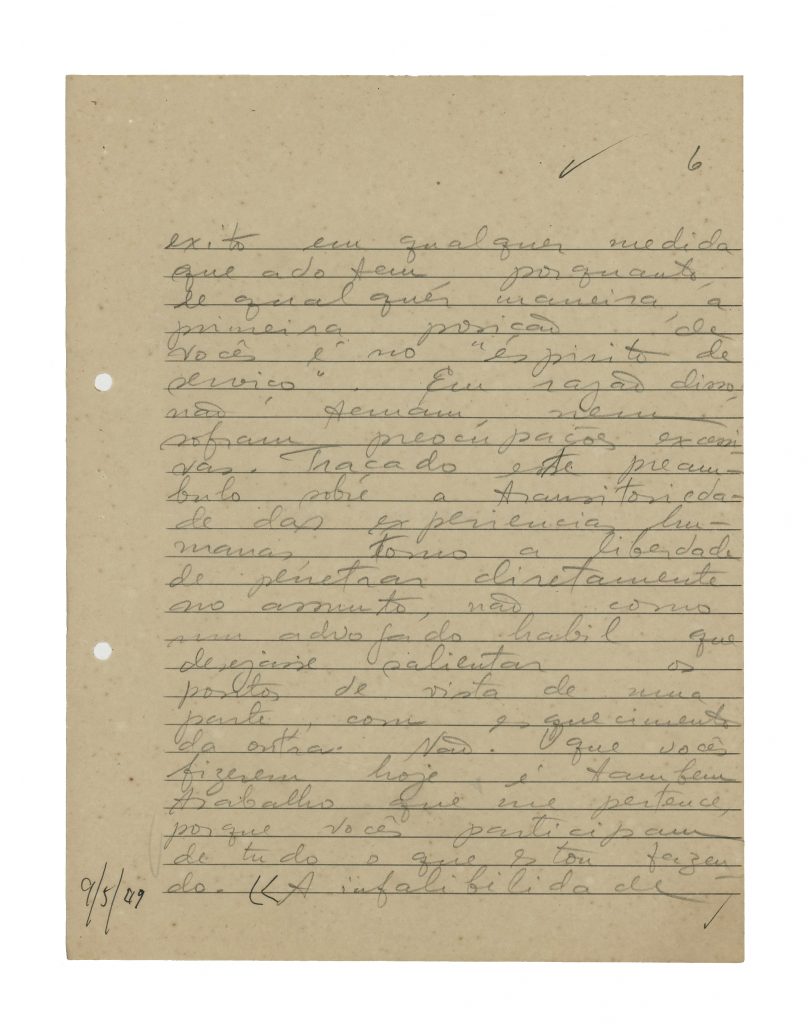 6
exito em qualquer medida
que adotem, porquanto,
de qualquér maneira, a
primeira posição de
vocês é no "espirito de
serviço". Em razão disso,
não temam, nem
sofram preocupações excessi-
vas. Traçado este pream-
bulo sobre a transitorieda-
de das experiencias hu-
manas tomo a liberdade
de penetrar diretamente
no assunto, não como
um advogado habil que
desejasse salientar os
pontos de vista de uma
parte, com esquecimento
da outra. Não. O que vocês
fizerem hoje é tambem
trabalho que me pertence,
porque vocês participam
de tudo o que estou fazen-
do. A infalibilidade
9/5/49